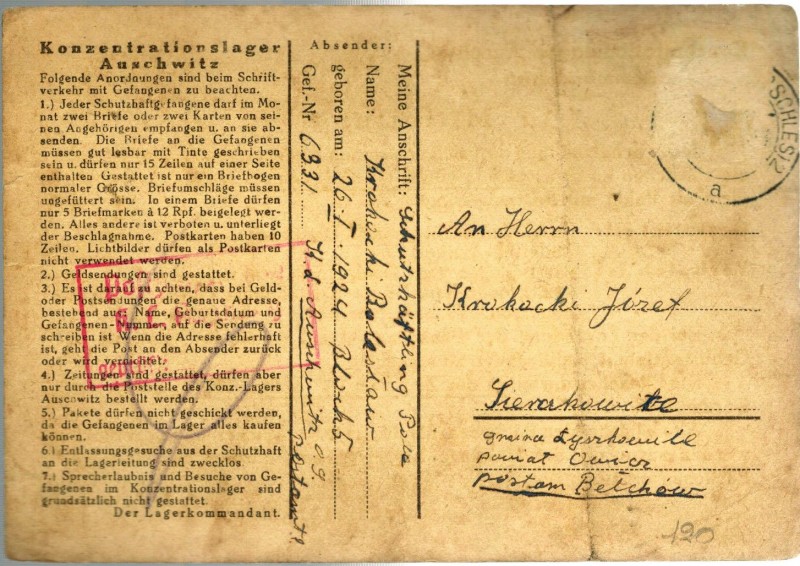 Konzentrationslager
Auschwitz
Folgende Anordnungen sind beim Schrift-
verkehr mit Gefangenen zu beachten.
1.) Jeder Schutzhaftgefangene darf im Mo-
nat zwei Briefe oder zwei Karten von sei-
nen Angehörigen empfangen u. an sie ab-
senden. Die Briefe an die Gefangenen
müssen gut lesbar mit Tinte geschrieben
sein u. dürfen nur 15 Zeilen auf einer Seite
enthalten Gestattet ist nur ein Briefbogen
normaler Grösse. Briefumschläge müssen
ungefüttert sein. In einem Briefe dürfen
nur 5 Briefmarken à 12 Rpf. beigelegt wer-
den. Alles andere ist verboten u. unterliegt
der Beschlagnahme. Postkarten haben 10
Zeilen. Lichtbilder dürfen als Postkarten
nicht verwendet werden.
2.) Geldsendungen sind gestattet.
3.) Es ist darauf zu achten, dass bei Geld-
oder Postsendungen die genaue Adresse,
bestehend aus Name, Geburtsdatum und
Gefangenen-Nummer, auf die Sendung zu
schreiben ist Wenn die Adresse fehlerhaft
ist, geht die Post an den Absender zurück
oder wird vernichtet.
4.) Zeitungen sind gestattet, dürfen aber
nur durch die Poststelle des Konz.-Lagers
Auschwitz bestellt werden.
5.) Pakete dürfen nicht geschickt werden,
da die Gefangenen im Lager alles kaufen
können.
6.) Entlassungsgesuche aus der Schutzhaft
an die Lagerleitung sind zwecklos.
7.) Sprecherlaubnis und Besuche von Ge-
fangenen im Konzentrationslager sind
grundsätzlich nicht gestattet.
Der Lagerkommandant.
Absender:
Meine Anschrift: Schutzhäftling Pole
Name: Krokocki Bolesław
geboren am: 26.I.1924 Block 5
Gef.-Nr 6331 K.d. Auschwitz O.S
Postamt 2
SCHLES) 2
a
An Herrn
Krokocki Józef
Sierakowice
gmina Łyszkowice
powiat
postam Bełchów
190